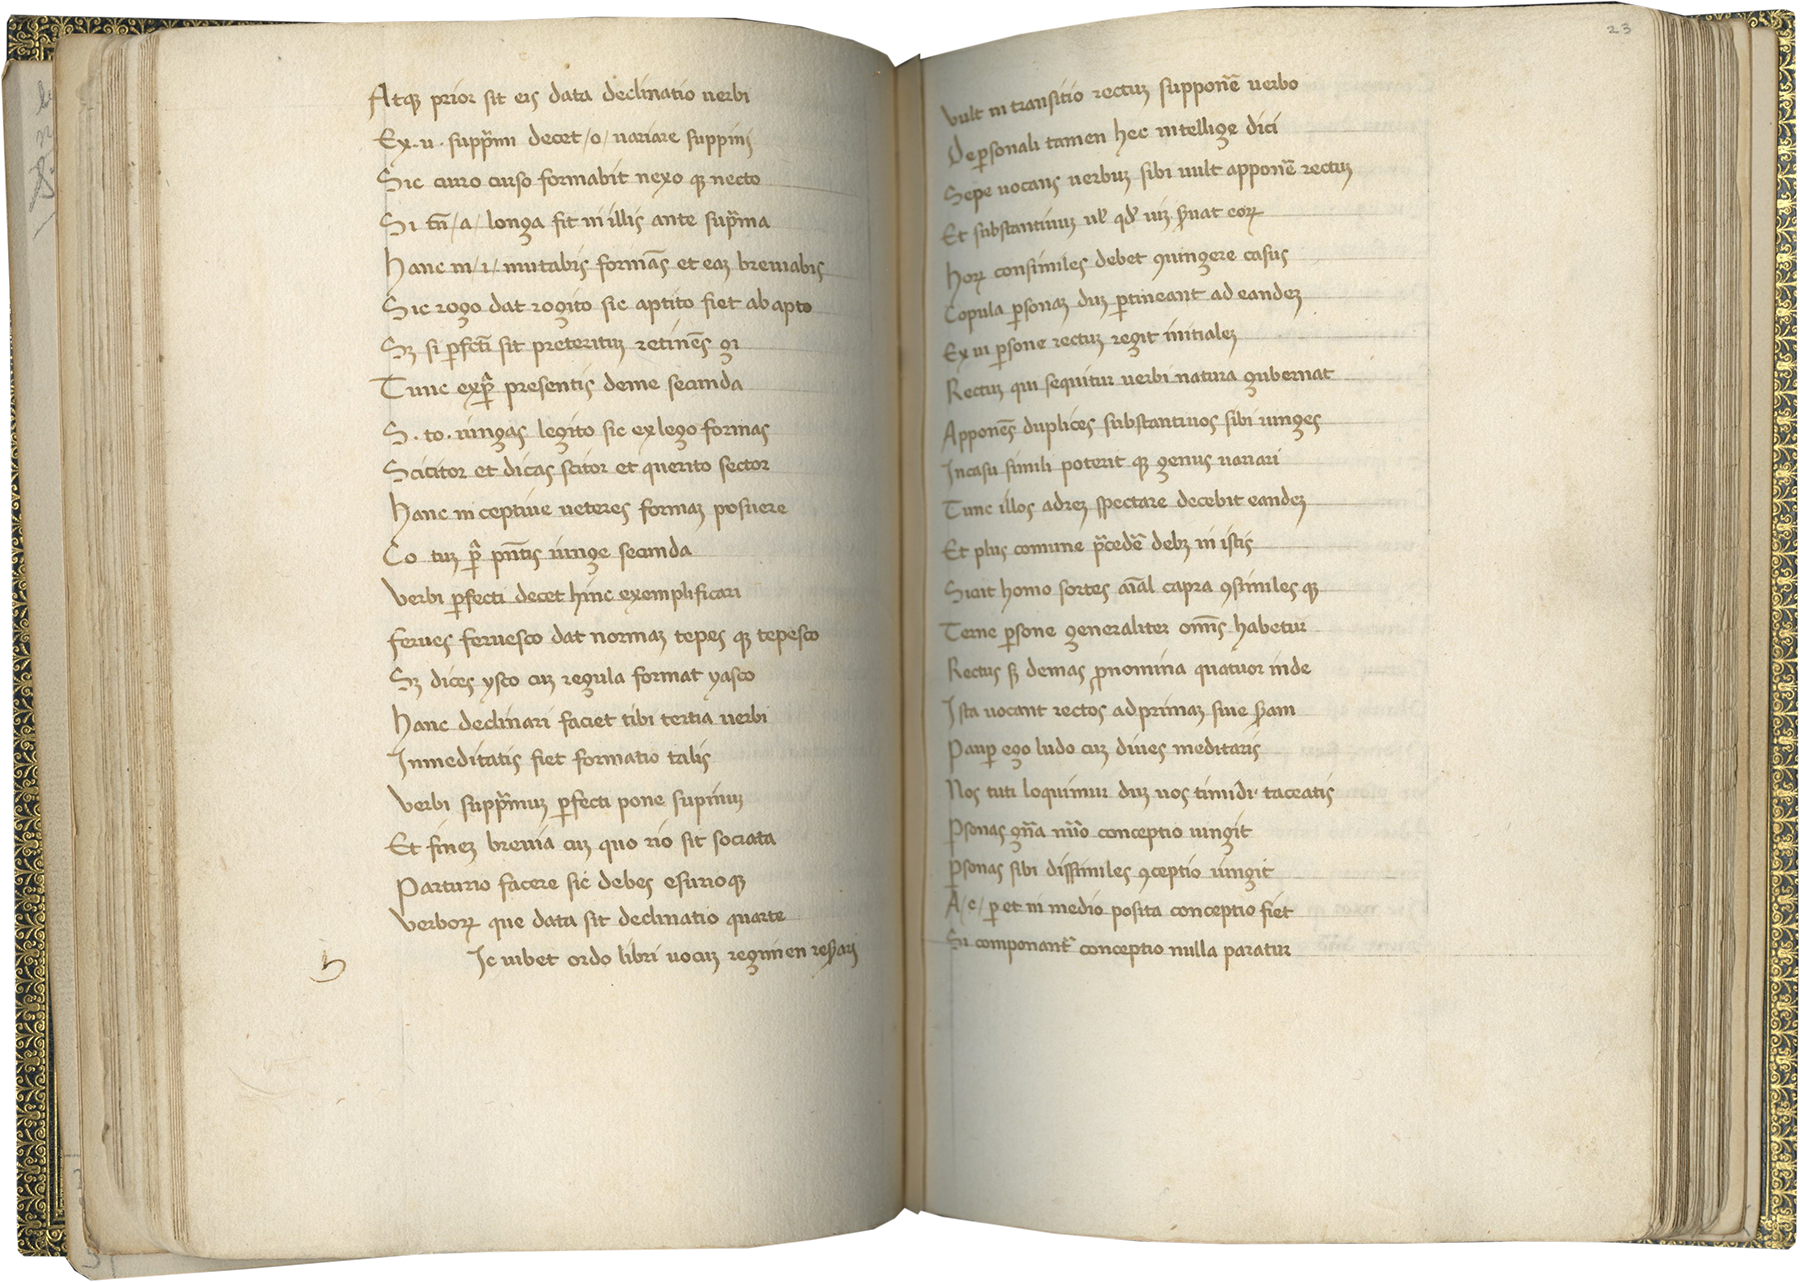 Atqȝ prior sit eis data declinatio uerbi
Ex .u. supp̄mi decet /o/ uariare suppini
Sic curro curso formabit nexo qȝ necto
Si tn̄ /a/ longa fit in illis ante sup̄ma
Hanc in /i/ mutabis formās et eaȝ breuiabis
Sic rogo dat rogito sic aptito fiet ab apto
Sȝ si ꝑfecti sit preterituȝ retinēs gi
Tunc ex pͣ presentis deme secunda
S. to. iungas legito sic ex lego formas
Scicitor et dicas scitor et querito sector
Hanc inceptiue ueteres formaȝ posuere
Co tuȝ pͣ pn̄tis iunge secunda
Verbi ꝑfecti decet hinc exemplificari
ferues feruesco dat normaȝ tepes qȝ tepesco
Sȝ dices ysco cuȝ regula format yasco
Hanc declinari faciet tibi tertia uerbi
In meditatis fiet formatio talis
Verbi supp̄muȝ ꝑfecti pone supinuȝ
Et fineȝ breuia cuȝ quo rio sit sociata
Parturio facere sic debes esurioqȝ
Verboꝝ que data sit declinatio quarte
h
Ic iubet ordo libri uocuȝ regimen reẜari
23
Vult intransitio rectuȝ supponē uerbo
De ꝑsonali tamen hec intellige dici
Sepe uocans uerbuȝ sibi uult apponē rectuȝ
Et substantiuuȝ ul̓ qd̓ uiȝ ẜuat eoꝝ
Hoꝝ consimiles debet ꝯiungere casus
Copula ꝑsonaȝ duȝ ꝑtineant ad eandeȝ
Ex ui ꝑsone rectuȝ regit initialeȝ
Rectuȝ qui sequitur uerbi natura gubernat
Apponēs duplices substantiuos sibi iunges
In casu simili poterit qȝ genus uariari
Tunc illos ad reȝ spectare decebit eandeȝ
Et plus comune p̄cedē̓ debȝ in istis
Sicut homo sortes aīal capra ꝯsimiles qȝ
Terne ꝑsone generaliter omīs habetur
Rectus sȝ demas ꝓnomina quatuor inde
Ista uocant rectos ad primaȝ siue ẜam
Pauꝑ ego ludo cuȝ diues meditaris
Nos tuti loquimur duȝ uos timidi taceatis
Ꝑsonas gn̄a nūo conceptio iungit
Ꝑsonas sibi dissimiles ꝯceptio iungit
A /c/ ꝑ et in medio posita conceptio fiet
Si componant̓ conceptio nulla paratur